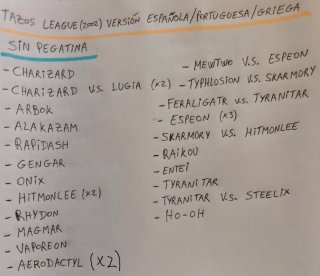 TAZOS LEAGUE (2002) VERSIÓN ESPAÑOLA/PORTUGUESA/GRIEGA
SIN PEGATINA
- CHARIZARD
- CHARIZARD V.S. LUGIA (x2)
- ARBOK
- ALAKAZAM
- RAPIDASH
- GENGAR
- ONIX
- HITMONLEE (x2)
- RHYDON
- MAGMAR
- VAPOREON
- AERODACTYL (x2)
- MEWTWO V.S. ESPEON
- TYPHLOSION V.S. SKARMORY
- FERALIGATR V.S. TYRANITAR
- ESPEON (x3)
- SKARMORY V.S. HITMONLEE
- RAIKOU
- ENTEI
- TYRANITAR
- TYRANITAR V.S. STEELIX
- HO-OH